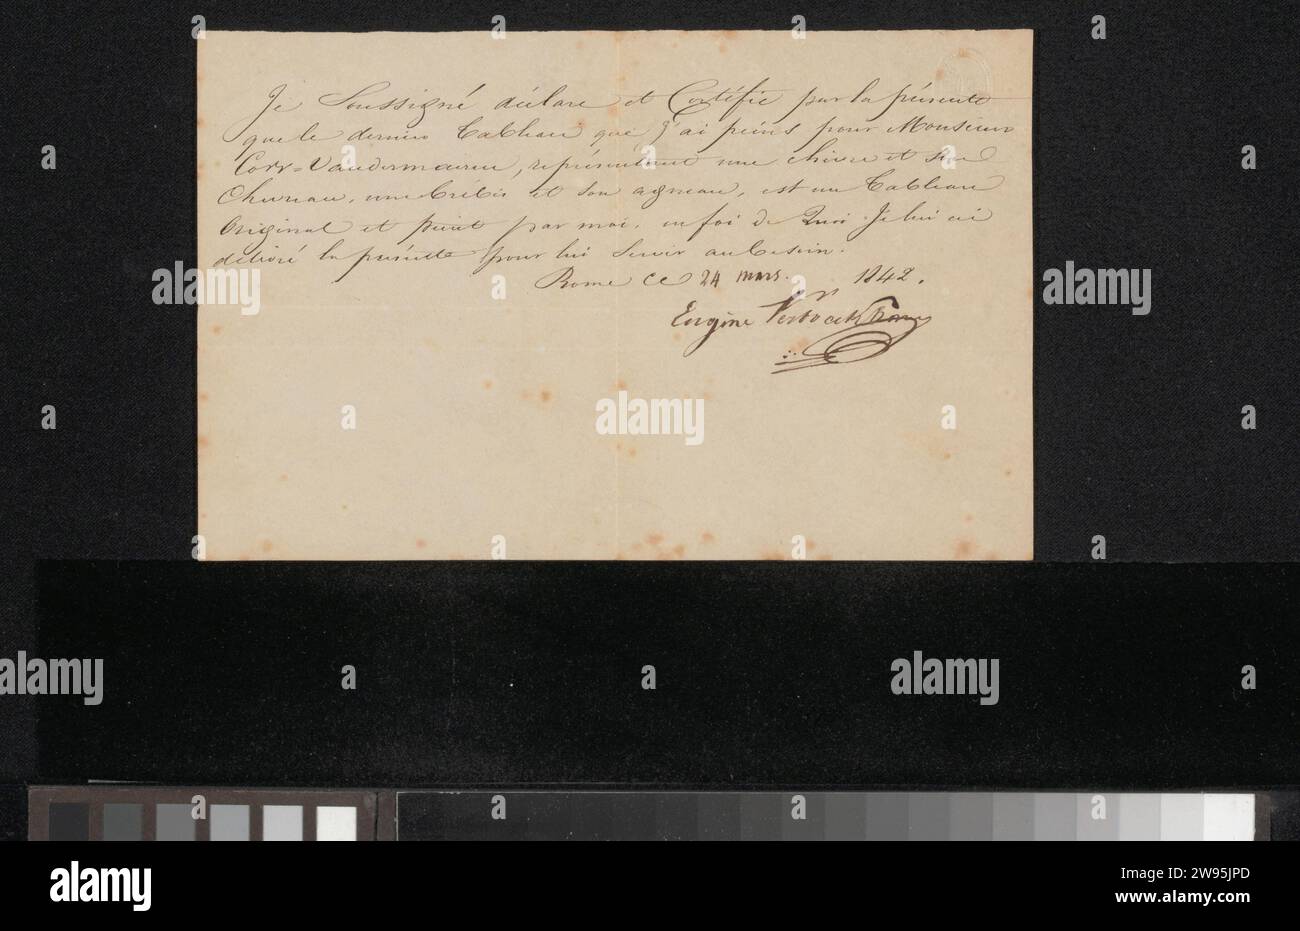 Je Soussigné déclare et Certifie par la présente
que le dernier tableau que j'ai peins pour Monsieur
Corr=Vandermaeren, représentant une chèvre et son
Chevreau, une brebis et son agneau, est un tableau
Original et peint par moi. en foi de Quoi Je lui ai
délivré la présente pour lui Servir au besoin.
Rome ce 24 mars. 1842.
Eugène Verboeckhoven
alamy
Image ID: 2W95JPD
www.alamy.com